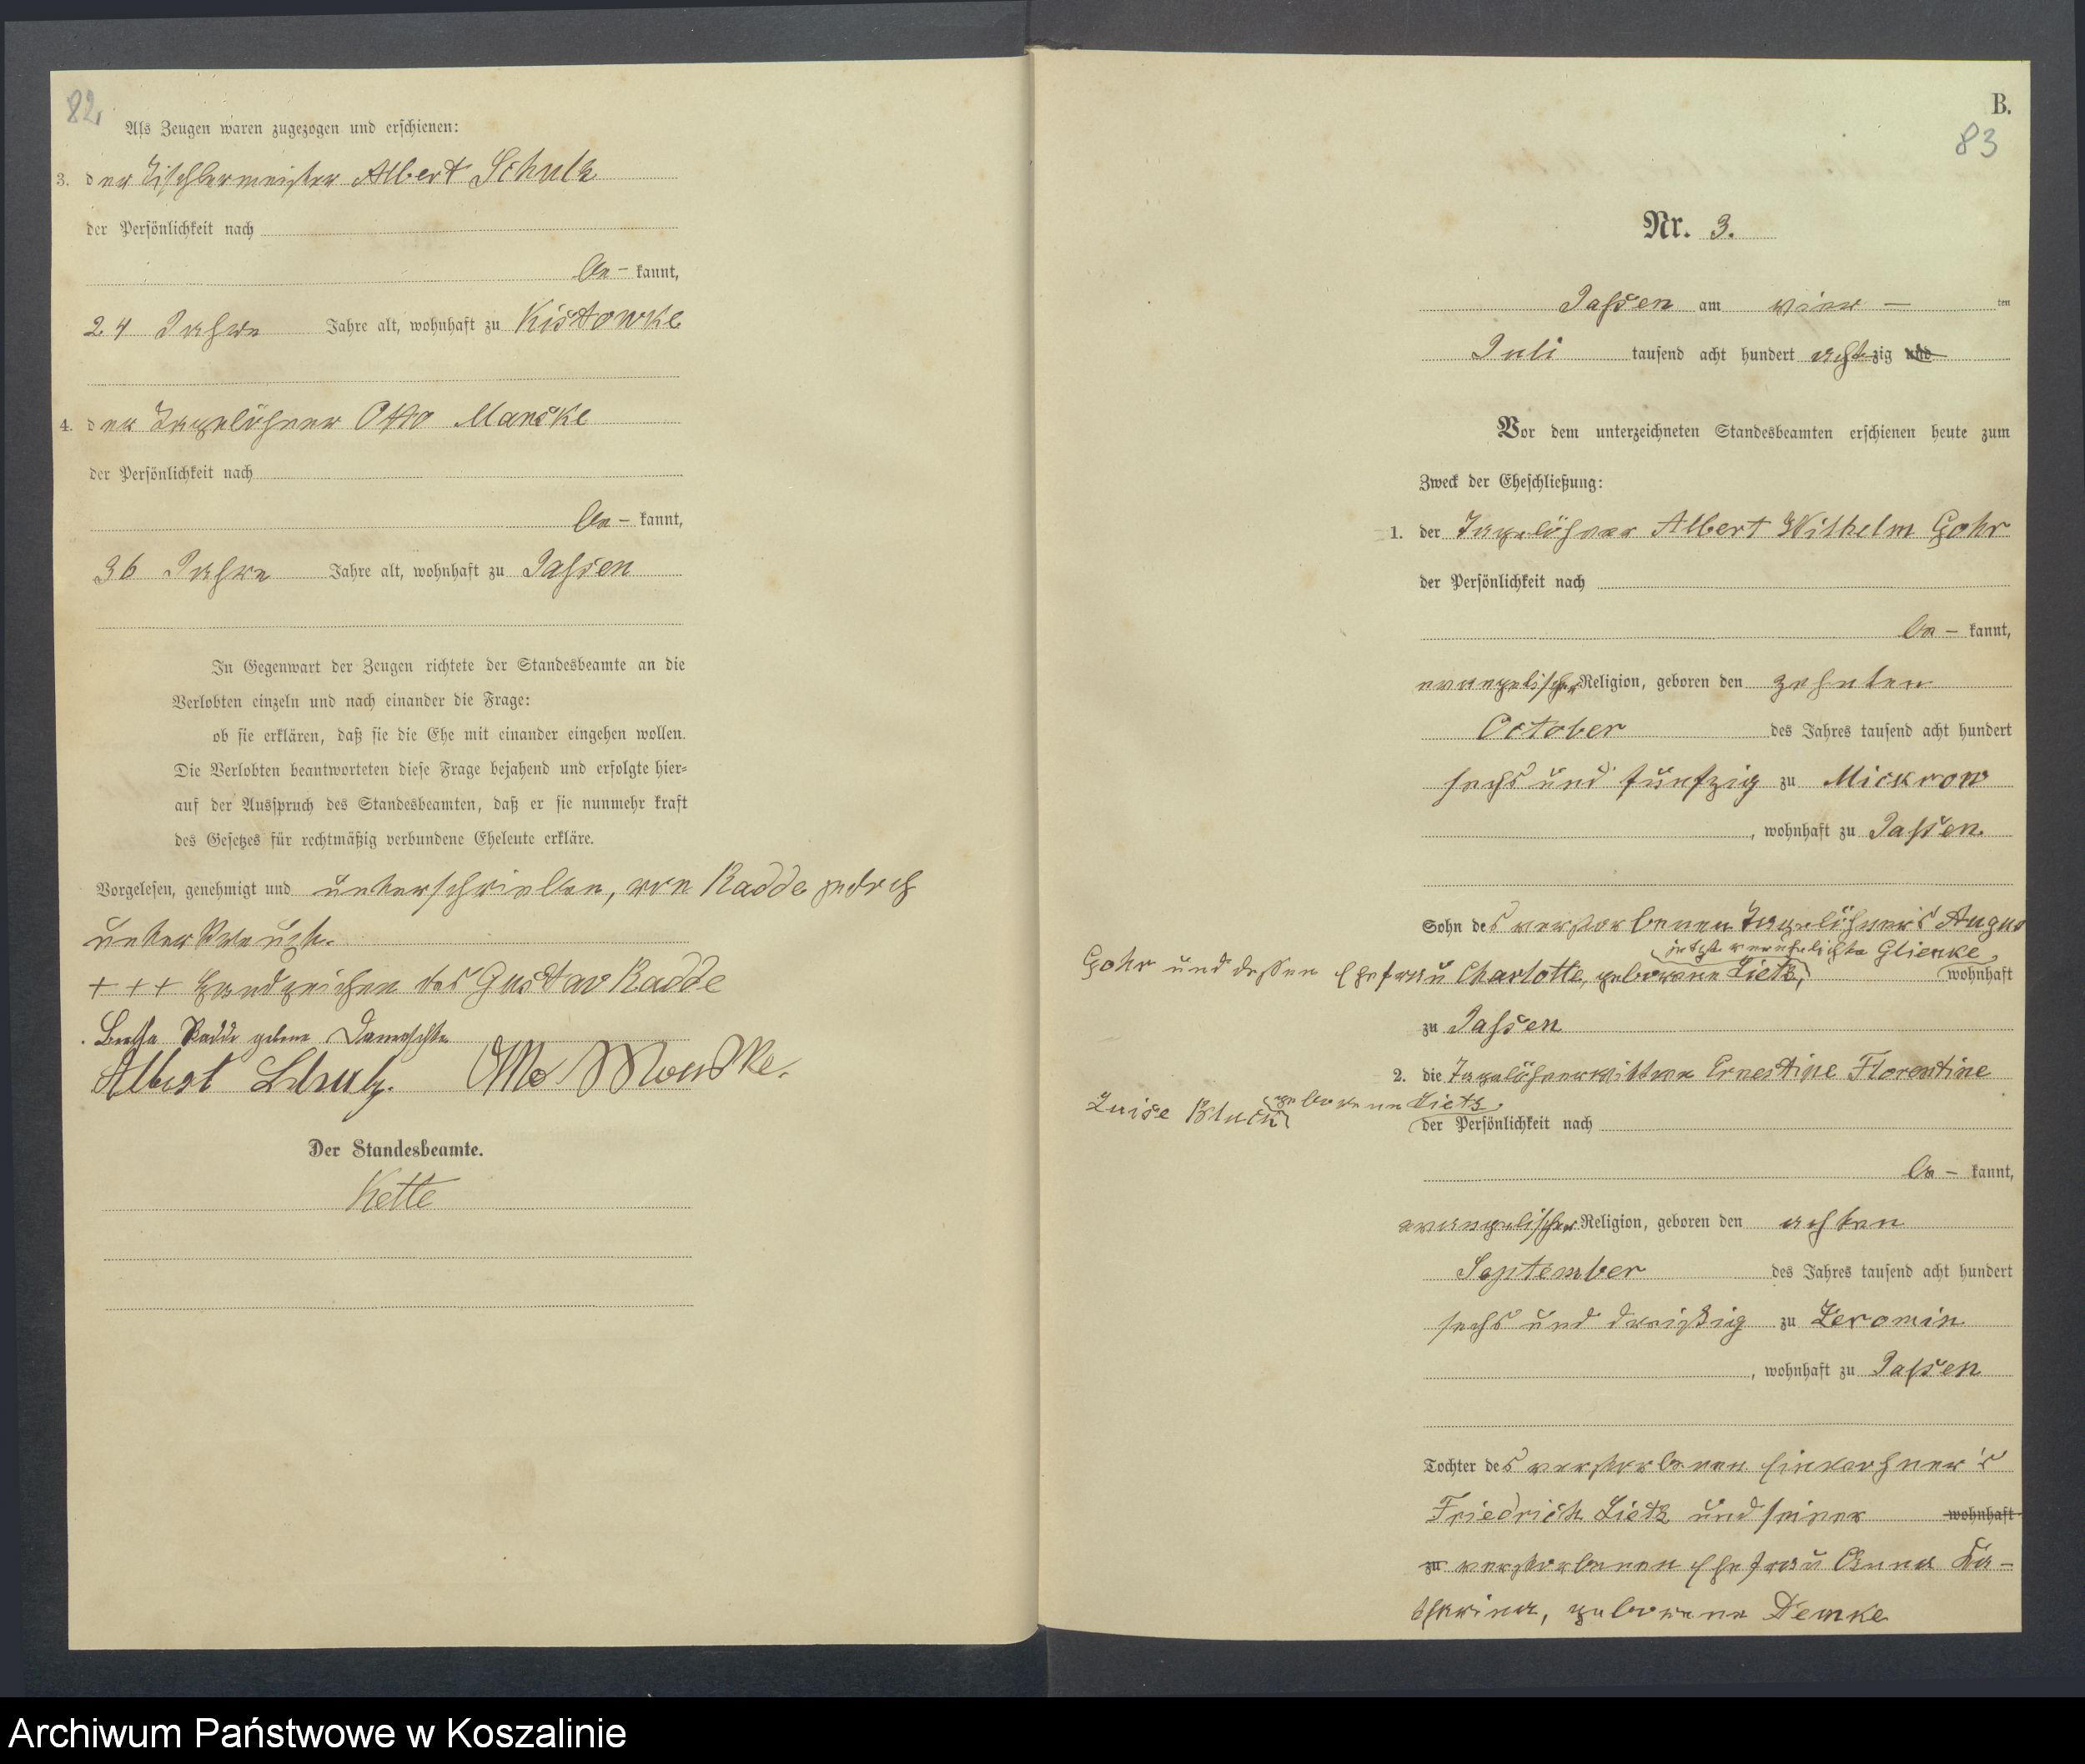 82,
Als Zeugen waren zugezogen und erschienen:
3. der Tischlermeister Albert Schulz
der Persönlichkeit nach
be – kannt,
24 Jahre Jahre alt, wohnhaft zu Kistowke
4. der Tagelöhner Otto Manske
der Persönlichkeit nach
be – kannt,
36 Jahre Jahre alt, wohnhaft zu Jassen
In Gegenwart der Zeugen richtete der Standesbeamte an die
Verlobten einzeln und nach einander die Frage:
ob sie erklären, daß sie die Ehe mit einander eingehen wollen.
Die Verlobten beantworteten diese Frage bejahend und erfolgte hier-
auf der Ausspruch des Standesbeamten, daß er sie nunmehr kraft
des Gesetzes für rechtmäßig verbundene Eheleute erkläre.
Vorgelesen, genehmigt und unterschrieben, von Radde jedoch
unterkreuzt.
+ + + Handzeichen des Gustav Radde
Radde
Albert Schulz. Otto Manske.
Der Standesbeamte.
Kette
B.
83
Nr. 3.
Jassen am vier – ten
Juli tausend acht hundert achtzig und
Vor dem unterzeichneten Standesbeamten erschienen heute zum
Zweck der Eheschließung:
1. der Tagelöhner Albert Wilhelm Gohr
der Persönlichkeit nach
be – kannt,
evangelischer Religion, geboren den zehnten
October des Jahres tausend acht hundert
sechs und fünfzig zu Mickrow
, wohnhaft zu Jassen
Sohn des verstorbenen Tagelöhner's August
jetzt verehelichte Glienke,
Gohr und dessen Ehefrau Charlotte, geborene Lietz, wohnhaft
zu Jassen
2. die Tagelöhnerwittwe Ernestine Florentine
Luise Bluck geborene Lietz,
der Persönlichkeit nach
be – kannt,
evangelischer Religion, geboren den achten
September des Jahres tausend acht hundert
sechs und dreißig zu Zeromin
, wohnhaft zu Jassen
Tochter des verstorbenen Einwohner's
Friedrich Lietz und seiner wohnhaft
zu verstorbenen Ehefrau Anna Ka-
tharina, geborene Demke
Archiwum Państwowe w Koszalinie